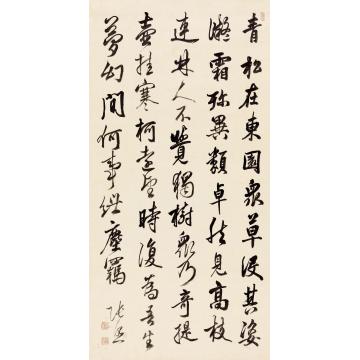 青松在東園衆草没其姿
凝霜殄異類卓然見高枝
連林人不覺獨樹衆乃奇提
壺挂寒柯遠望時復為吾生
夢幻間何事紲塵羈 張照